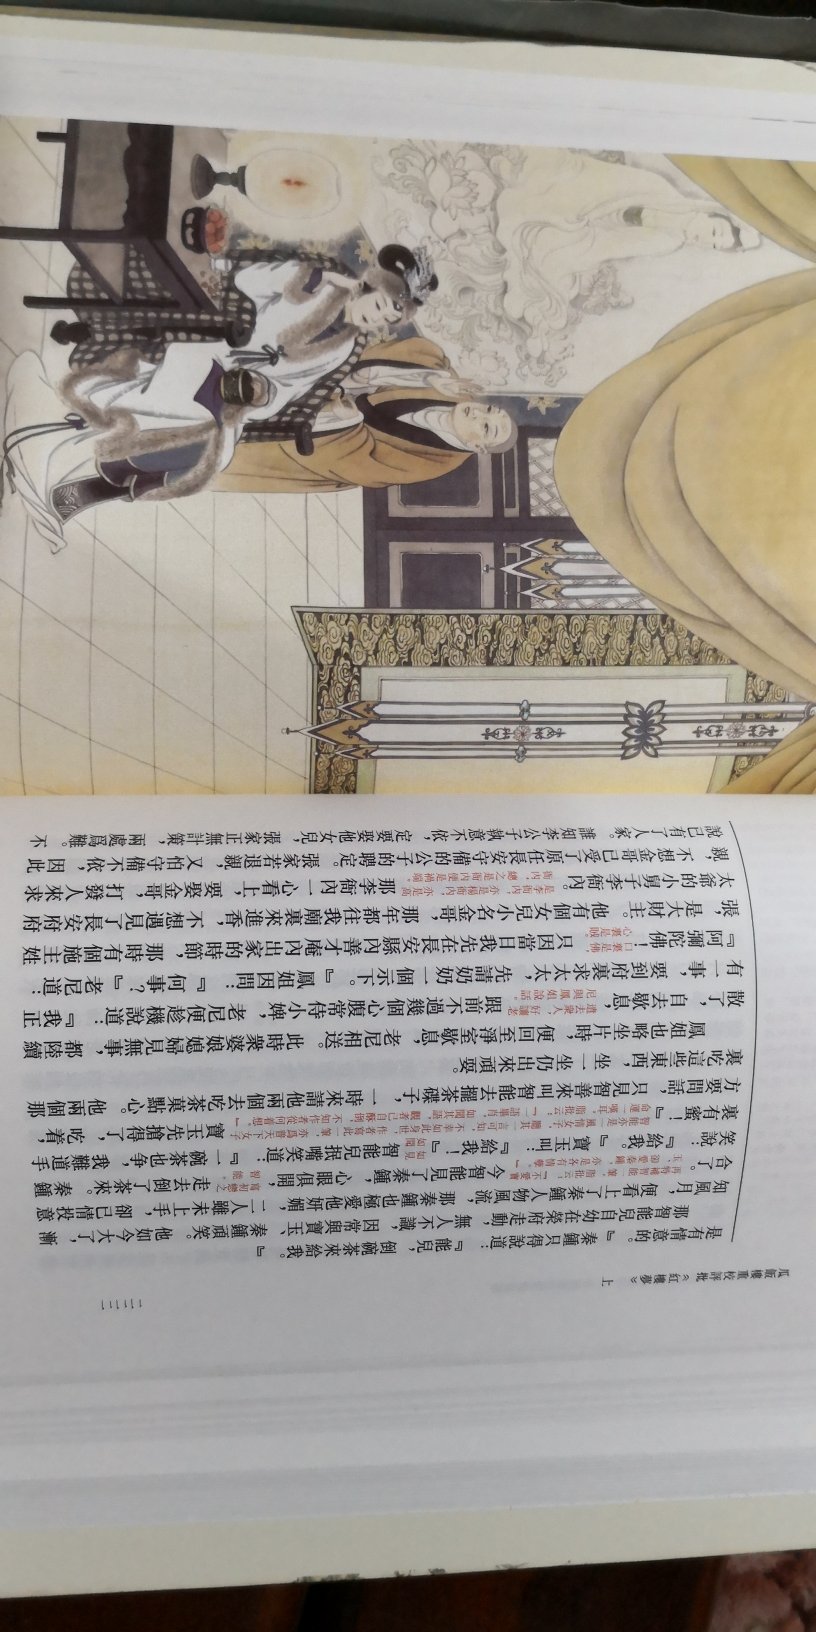 瓜飯樓重校評批《紅樓夢》上
是有情意的。』秦鍾只得說道：『能兒，倒碗茶來給我。』
那智能兒自幼在榮府走動，無人不識，因常與寶玉、秦鍾頑笑。他如今大了，漸
知風月，便看上了秦鍾人物風流，那秦鍾也極愛他妍媚，二人雖未上手，卻已情投意
合了。脂批云：『不愛寶玉，卻愛秦鍾，亦是各有情孽。』今智能見了秦鍾，心眼俱開，走去倒了茶來。秦鍾
笑說：『給我。』寶玉叫：『給我！』如見如聞智能兒抿嘴笑道：『一碗茶也爭，我難道手
裏有蜜！』寶玉先搶得了，吃着，
方要問話，只見智善來叫智能去擺茶碟子，一時來請他兩個去吃茶菓點心。他兩個那
裏吃這些東西，坐一坐仍出來頑耍。
鳳姐也略坐片時，便回至淨室歇息，老尼相送。此時衆婆娘媳婦見無事，都陸續
散了，自去歇息，遣去衆人，好讓老尼與鳳姐說話。跟前不過幾個心腹常侍小婢，老尼便趁機說道：『我正
有一事，要到府裏求太太，先請奶奶一個示下。』鳳姐因問：『何事？』老尼道：
『阿彌陀佛！口裏是佛，心裏是賊。只因當日我先在長安縣內善才庵內出家的時節，那時有個施主姓
張，是大財主。他有個女兒小名金哥，那年都往我廟裏來進香，不想遇見了長安府府
太爺的小舅子李衙內。那李衙內一心看上，要娶金哥，打發人來求
親，不想金哥已受了原任長安守備的公子的聘定。張家若退親，又怕守備不依，因此
說已有了人家。誰知李公子執意不依，定要娶他女兒，張家正無計策，兩處爲難。不
一三三